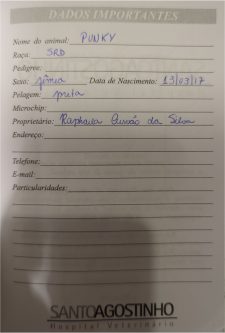 DADOS IMPORTANTES
Nome do animal: PUNKY
Raça: SRD
Pedigree:
Sexo: fêmea Data de Nascimento: 13/03/17
Pelagem: preta
Microchip:
Proprietário: Raphaela da Silva
Endereço:
Telefone:
E-mail:
Particularidades:
SANTOAGOSTINHO
Hospital Veterinário